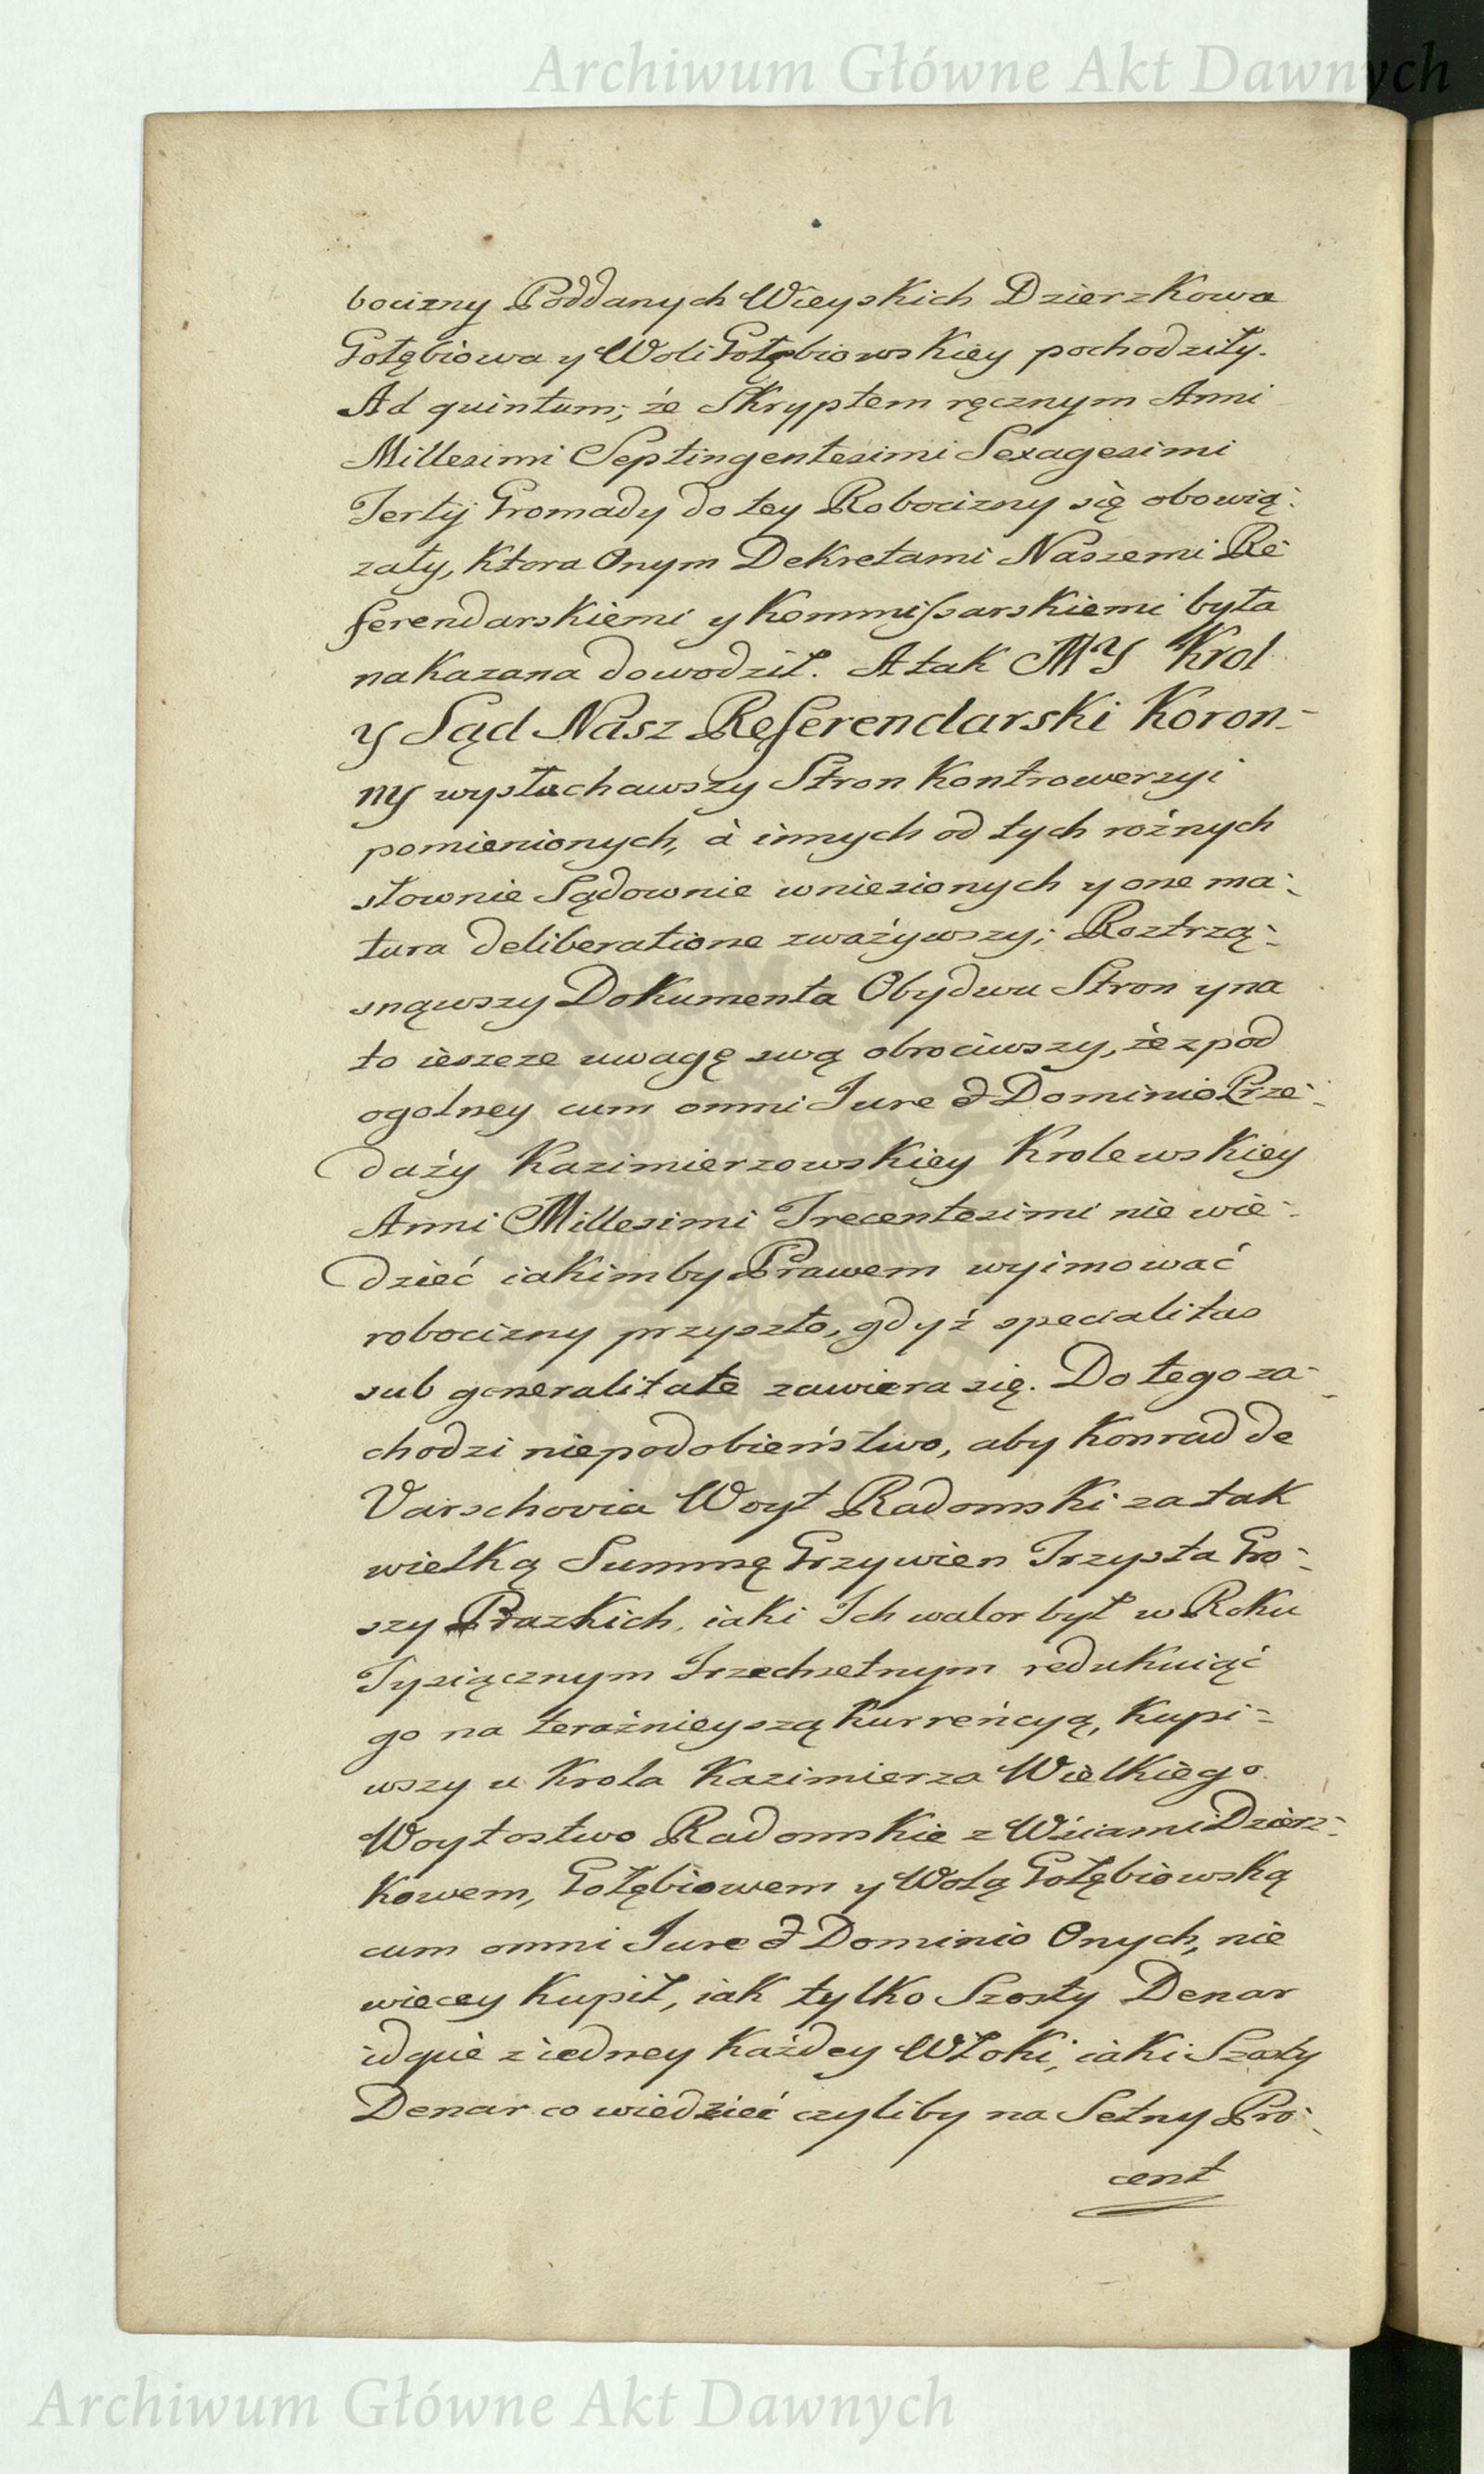 Archiwum Główne Akt Dawnych
bocizny Poddanych Wieyskich Dzierzkowa
Gołębiowa y Woli Gołębiowskiey pochodziły.
Ad quintum; że Skryptem ręcznym Anni
Millesimi Septingentesimi Sexagesimi
Tertij Gromady do tey Robocizny się obowią-
zały, ktora Onym Dekretami Naszemi Re-
ferendarskiemi y Kommissarskiemi była
nakazana dowodził. A tak MY Krol
y Sąd Nasz Referendarski Koron-
ny wysłuchawszy Stron Kontrowersyi
pomienionych, à innych od tych rożnych
słownie Sądownie wniesionych y one ma-
tura deliberatione zważywszy; Roztrzą-
snąwszy Dokumenta Obydwu Stron y na
to ieszcze uwagę swą obrociwszy, że z pod
ogolney cum omni Jure & Dominio Prze-
daży Kazimierzowskiey Krolewskiey
Anni Millesimi Trecentesimi nie wie-
dzieć iakimby Prawem wyimować
robocizny przyszło, gdyż specialitas
sub generalitate zawiera się. Do tego za-
chodzi niepodobieństwo, aby Konrad de
Varschovia Woyt Radomski za tak
wielką Summę Grzywien Trzysta Gro-
szy Prazkich, iaki Ich walor był w Roku
Tysiącznym Trzechsetnym redukuiąć
go na teraźnieyszą kurreńcyą, kupi-
wszy u Krola Kazimierza Wielkiego
Woytostwo Radomskie z Wsiami Dzierz-
kowem, Gołębiowem y Wolą Gołębiowską
cum omni Jure & Dominio Onych, nie
wiecey kupił, iak tylko Szosty Denar
idque z iedney każdey Włoki, iaki Szosty
Denar co wiedzieć czyliby na Setny Pro-
cent
Archiwum Główne Akt Dawnych